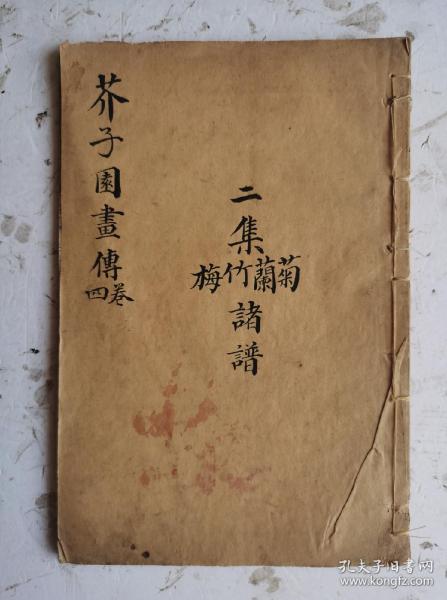 芥子園畫傳
卷四
二集
菊蘭竹梅
諸譜
孔夫子旧书网
www.kongfz.com